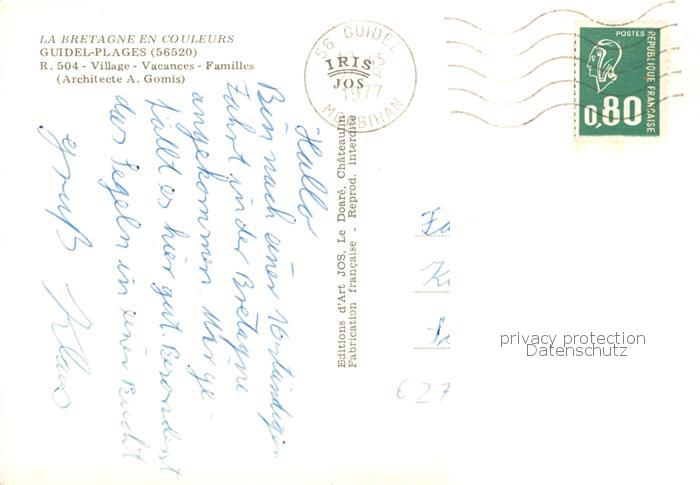 LA BRETAGNE EN COULEURS
GUIDEL-PLAGES (56520)
R. 504 - Village - Vacances - Familles
(Architecte A. Gomis)
56 GUIDEL
1977
MORBIHAN
IRIS
JOS
POSTES
REPUBLIQUE FRANÇAISE
0,80
Hallo
Bin nach einer 16 stündigen
Fahrt in der Bretagne
angekommen. Mir ge-
fällt es hier gut. Besonders
das Segeln in einer Bucht
Gruß Klaus
Editions d'Art JOS, Le Doaré, Châteaulin
Fabrication française - Reprod. interdite
627
privacy protection
Datenschutz